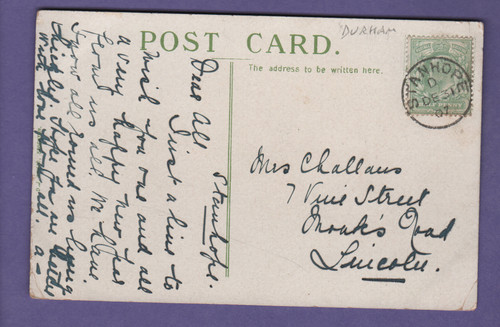 DURHAM
POST CARD.
The address to be written here.
STANHOPE
D
DE 31
07
Stanhope.
Dear All
Just a line to
wish you one and all
a very happy new year
from us all we have
snow all round us
with you
Mrs Challans
7 Vine Street
Monk's Road
Lincoln.